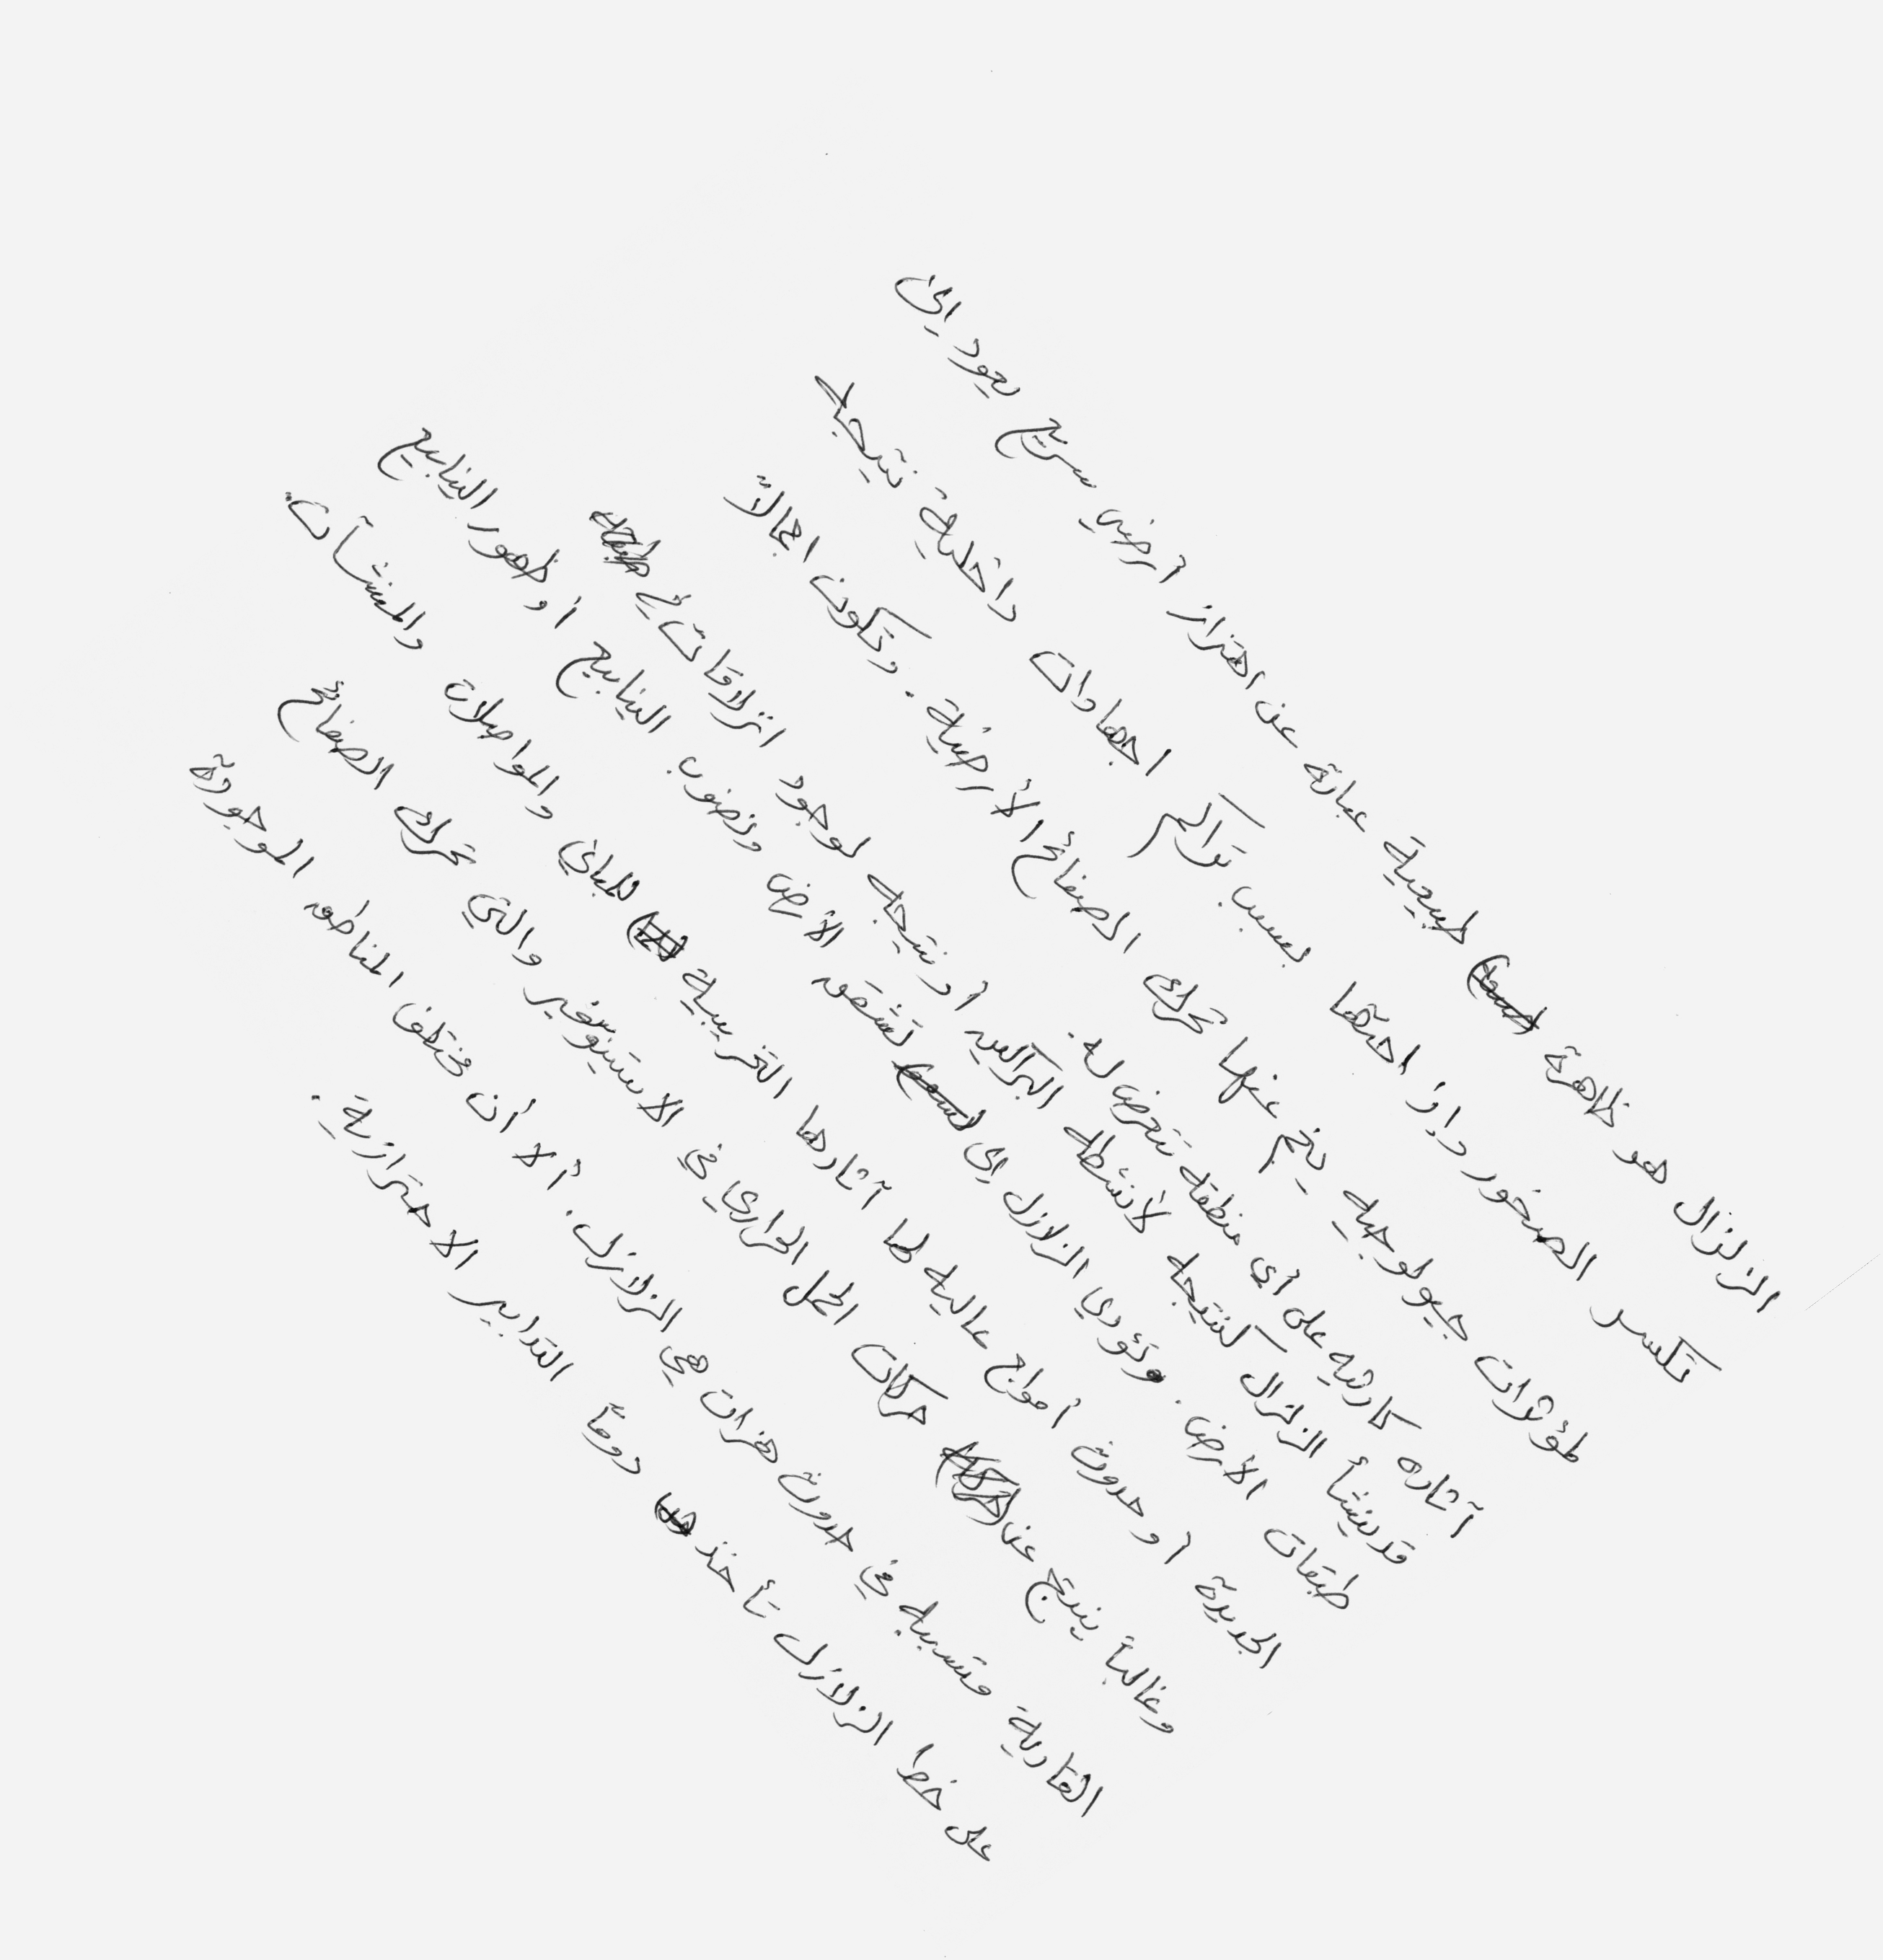 الزلزال هو ظاهرة طبيعية عبارة عن اهتزاز أرضي سريع يعود إلى
تكسر الصخور وإزاحتها بسبب تراكم اجهادات داخلية نتيجة
لمؤثرات جيولوجيه ينجم عنها تحرك الصفائح الأرضية. وتكون هناك
آثاره كارثيه على أي منطقه تتعرض له.
قد ينشأ الزلزال كنتيجه لأنشطه البراكين أو نتيجه لوجود انزلاقات في
طبقات الأرض. وتؤدي الزلازل إلى تشقق الأرض ونضوب الينابيع أو ظهور الينابيع
الجديدة أو حدوث أمواج عاليه لها آثارها التخريبية للمباني والمواصلات والمنشآت
وغالباً ينتج عن حركات الحمل الحراري في الاستينوسفير والتي تحرك الصفائح
القارية متسببه في حدوث هزات هي الزلازل. ألا أن مختلف المناطق الموجودة
على خط الزلازل تأخذ دوماً التدابير الاحترازية.